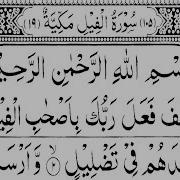 (١٠٥) سُوْرَةُ الْفِيْلِ مَكِّيَّةٌ (١٩)
سْمِ اللهِ الرَّحْمٰنِ الرَّحِيْ
فَ فَعَلَ رَبُّكَ بِاَصْحٰبِ الْفِ
دَهُمْ فِيْ تَضْلِيْلٍ ۙ٢ وَّاَرْسَ